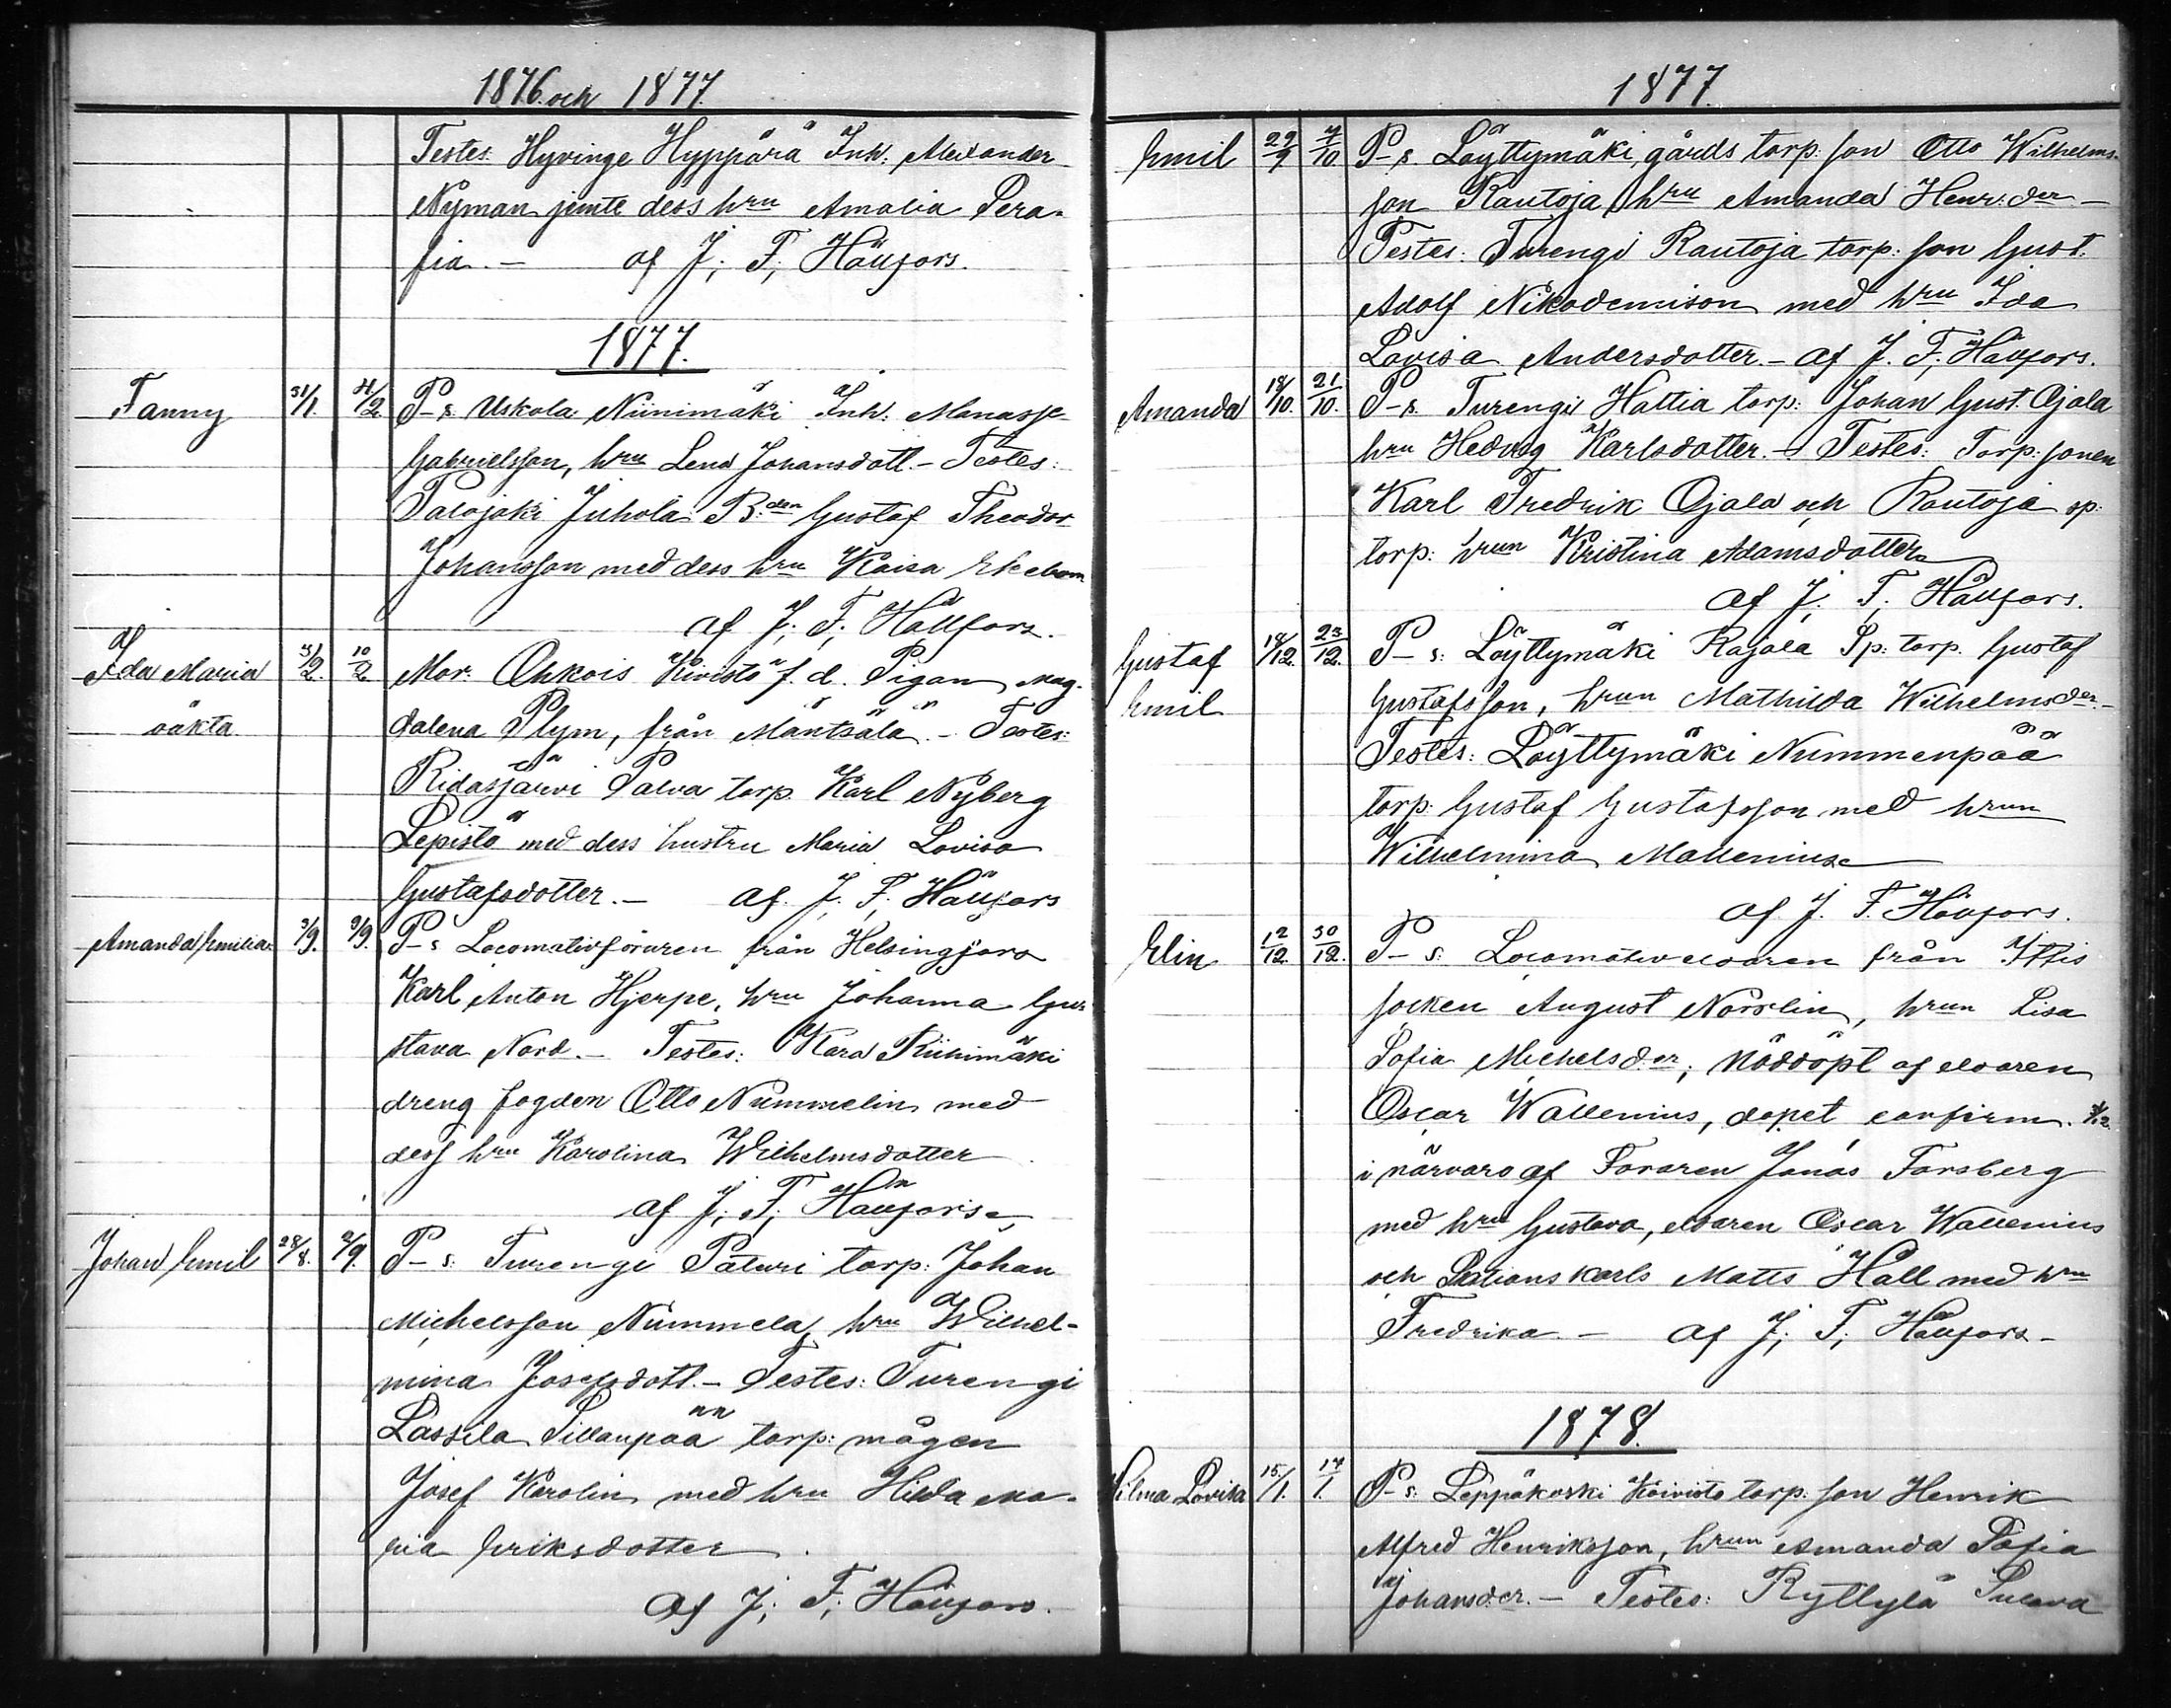 1876. och 1877.
Testes: Hyvinge Hyppärä Inh: Alexander
Nyman jemte dess hru Amalia Sera-
fia. – af J. F. Hällfors.
1877.
Fanny 31/1. 4/2. P–s. Uskola Niinimäki Inh: Manasse
Gabrielsson, hru Lena Johansdott. – Testes:
Palojoki Juhola B:den Gustaf Theodor
Johansson med dess hru Kaisa Ekebom
af J. F. Hällfors.
Ida Maria 3/2. 10/2 Mor: Ohkois Kivistö f. d. Pigan Mag-
oäkta dalena Plym, från Mäntsälä. – Testes:
Ridasjärvi Palva torp. Karl Nyberg
Lepistö med dess hustru Maria Lovisa
Gustafsdotter. – af J. F. Hällfors
Amanda Emilia 3/9. 9/9. P–s Locomotivföraren från Helsingfors
Karl Anton Hjerpe, hru Johanna Gus-
tava Nord. – Testes: Kara Riihimäki
dreng fogden Otto Nummelin med
dess hru Karolina Wilhelmsdotter
af J. F. Hällfors
Johan Emil 28/8. 2/9. P–s: Turengi Paturi torp: Johan
Michelsson Nummela, hru Wilhel-
mina Josefsdott. – Testes: Turengi
Lassila Sillanpää torp: mågen
Josef Karolin med hru Hilda Ma-
ria Eriksdotter
af J. F. Hällfors.
1877.
Emil 29/9 7/10. P–s. Löyttymäki, gårds torp: son Otto Wilhelms-
son Rautoja, hru Amanda Henr:der –
Testes: Turengi Rautoja torp: son Gust.
Adolf Nikodemison med hru Ida
Lovisa Andersdotter. – af J. F. Hällfors.
Amanda 18/10. 21/10. P–s. Turengi Hattia torp: Johan Gust. Ojala
hru Hedvig Karlsdotter. – Testes: Torp: sonen
Karl Fredrik Ojala och Rautoja sp:
torp: hrun Kristina Adamsdotter
af J. F. Hällfors.
Gustaf 18/12. 23/12. P–s: Löyttymäki Rajala Sp: torp. Gustaf
Emil Gustafsson, hrun Mathilda Wilhelmsder. –
Testes: Löyttymäki Nummenpää
torp: Gustaf Gustafsson med hrun
Wilhelmina Mallenius
af J. F. Hällfors.
Elin 12/12. 30/12. P–s: Locomotiveldaren från Ittis
socken August Norrlin, hrun Lisa
Sofia Michelsd:er; nöddöpt af eldaren
Oscar Wallenius, dopet confirm.
i närvaro af Föraren Jonas Forsberg
med hru Gustava, eldaren Oscar Wallenius
och Stationskarls Matts Häll med hru
Fredrika. – af J. F. Hällfors. –
1878.
Hilma Lovisa 15/1. 17/1. P–s: Leppäkoski Koivisto torp: son Henrik
Alfred Henriksson, hrun Amanda Sofia
Johansder. – Testes: Ryttylä